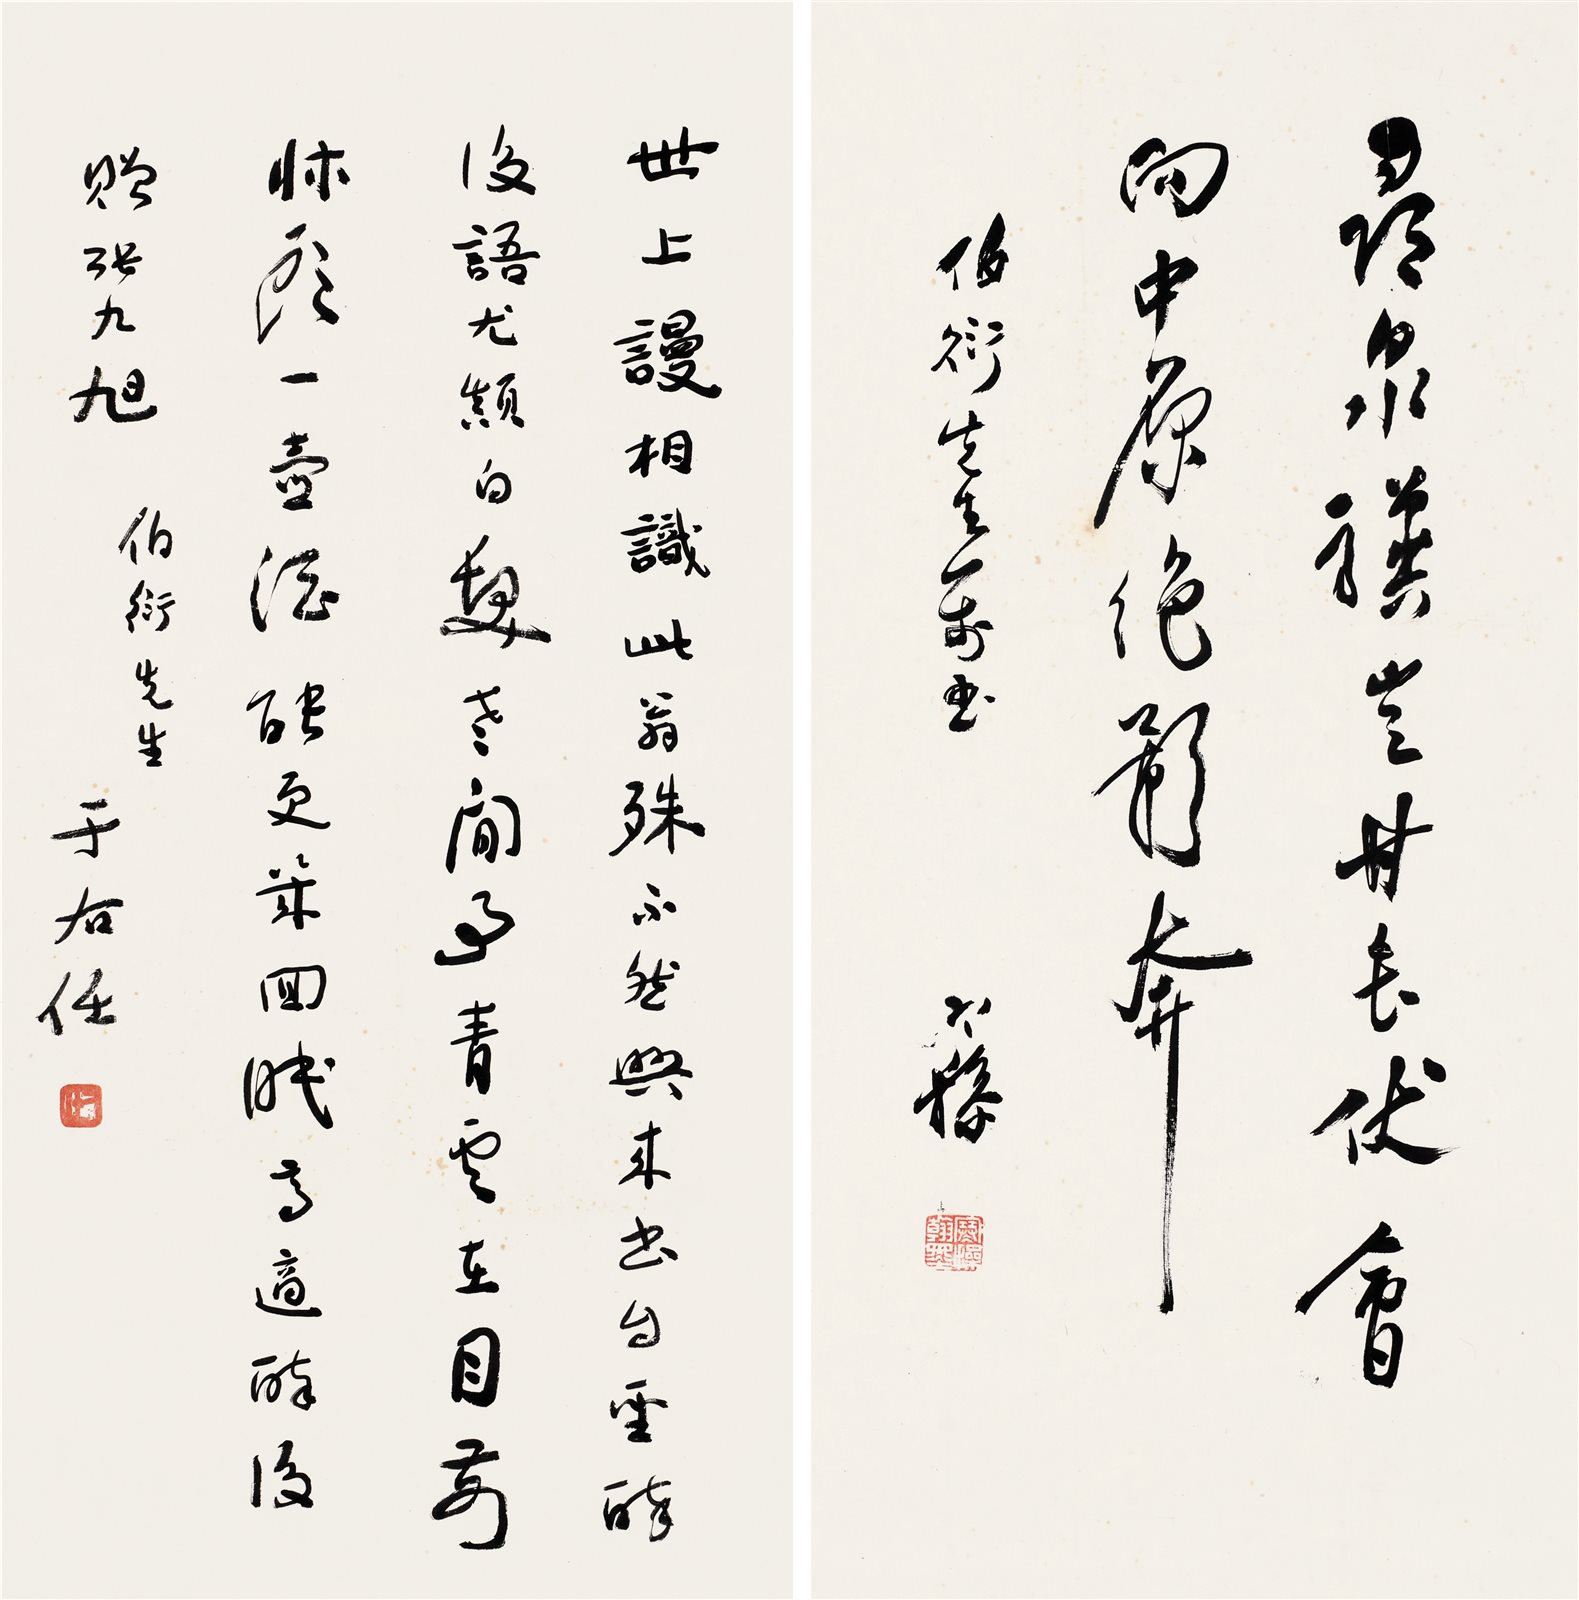 泉驥豈甘長伏會
向中原絕影奔
伯衍先生屬書
世上謾相識此翁殊不然興來書自聖醉
後語尤顛白髮老閒事青雲在目前
牀頭一壺酒能更幾回眠高適醉後
贈張九旭
伯衍先生
于右任